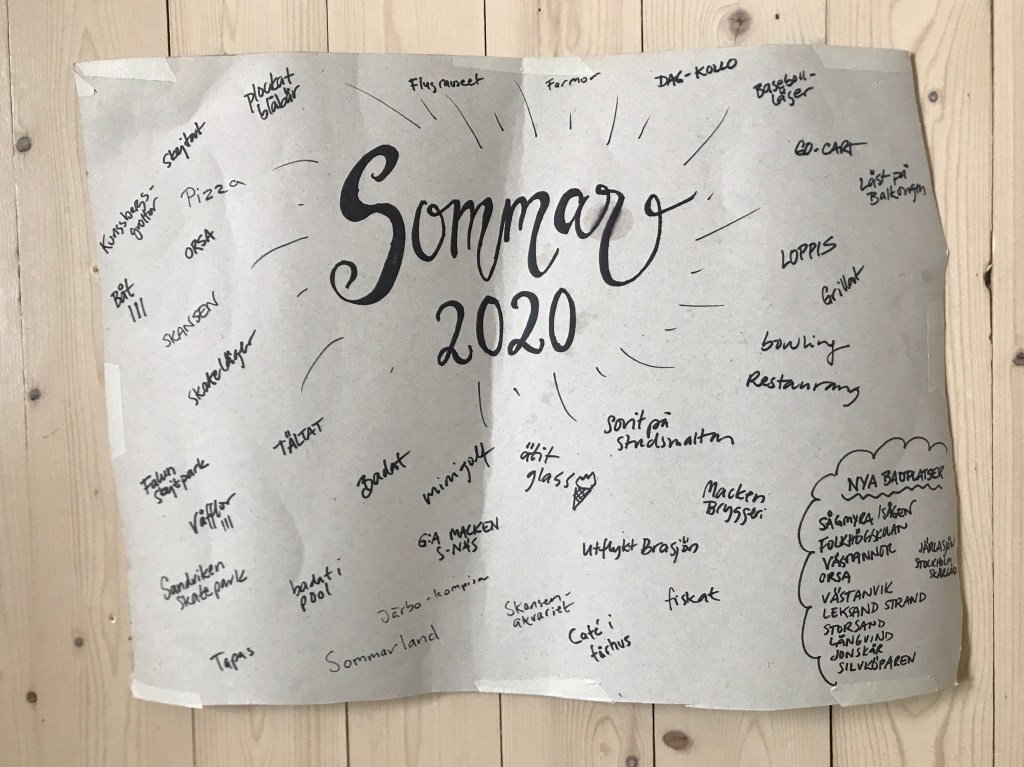 plockat
blåbär
Flygmuseet
Farmor
DAG-KOLLO
Baseboll-
läger
Skejtat
GO-CART
Pizza
Läst på
Balkongen
Kungsbergs-
grottor
ORSA
Sommar
2020
LOPPIS
Båt
!!!
SKANSEN
Grillat
skateläger
bowling
Restaurang
TÄLTAT
sovit på
studsmattan
Falun
Skejtpark
Badat
minigolf
ätit
glass
Macken
Bryggeri
Våfflor
!!!
G:A MACKEN
S-NÄS
utflykt Brasjön
Sandviken
skatepark
badat i
pool
Järbo-kompisar
Skansen-
akvariet
fiskat
Café i
fårhus
Tapas
Sommarland
NYA BADPLATSER
SÅGMYRA/SÅGEN
FOLKHÖGSKOLAN
VÄSTANNOR
ORSA
VÄSTANVIK
LEKSAND STRAND
STORSAND
LÅNGVIND
JONSKÄR
SILVKÖPAREN
JÄRLASJÖN
STOCKHOLM